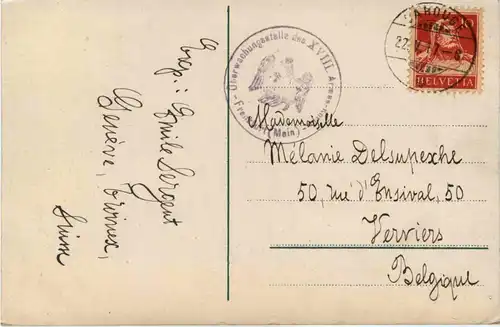 Exp: E. Emile Sergent
Genève, Troinex,
Suisse
Überwachungsstelle des XVIII. Armee
Frankfurt (Main)
CAROUGE
10
HELVETIA
Mademoiselle
Mélanie Delsupexhe
50, rue d'Ensival, 50
Verviers
Belgique